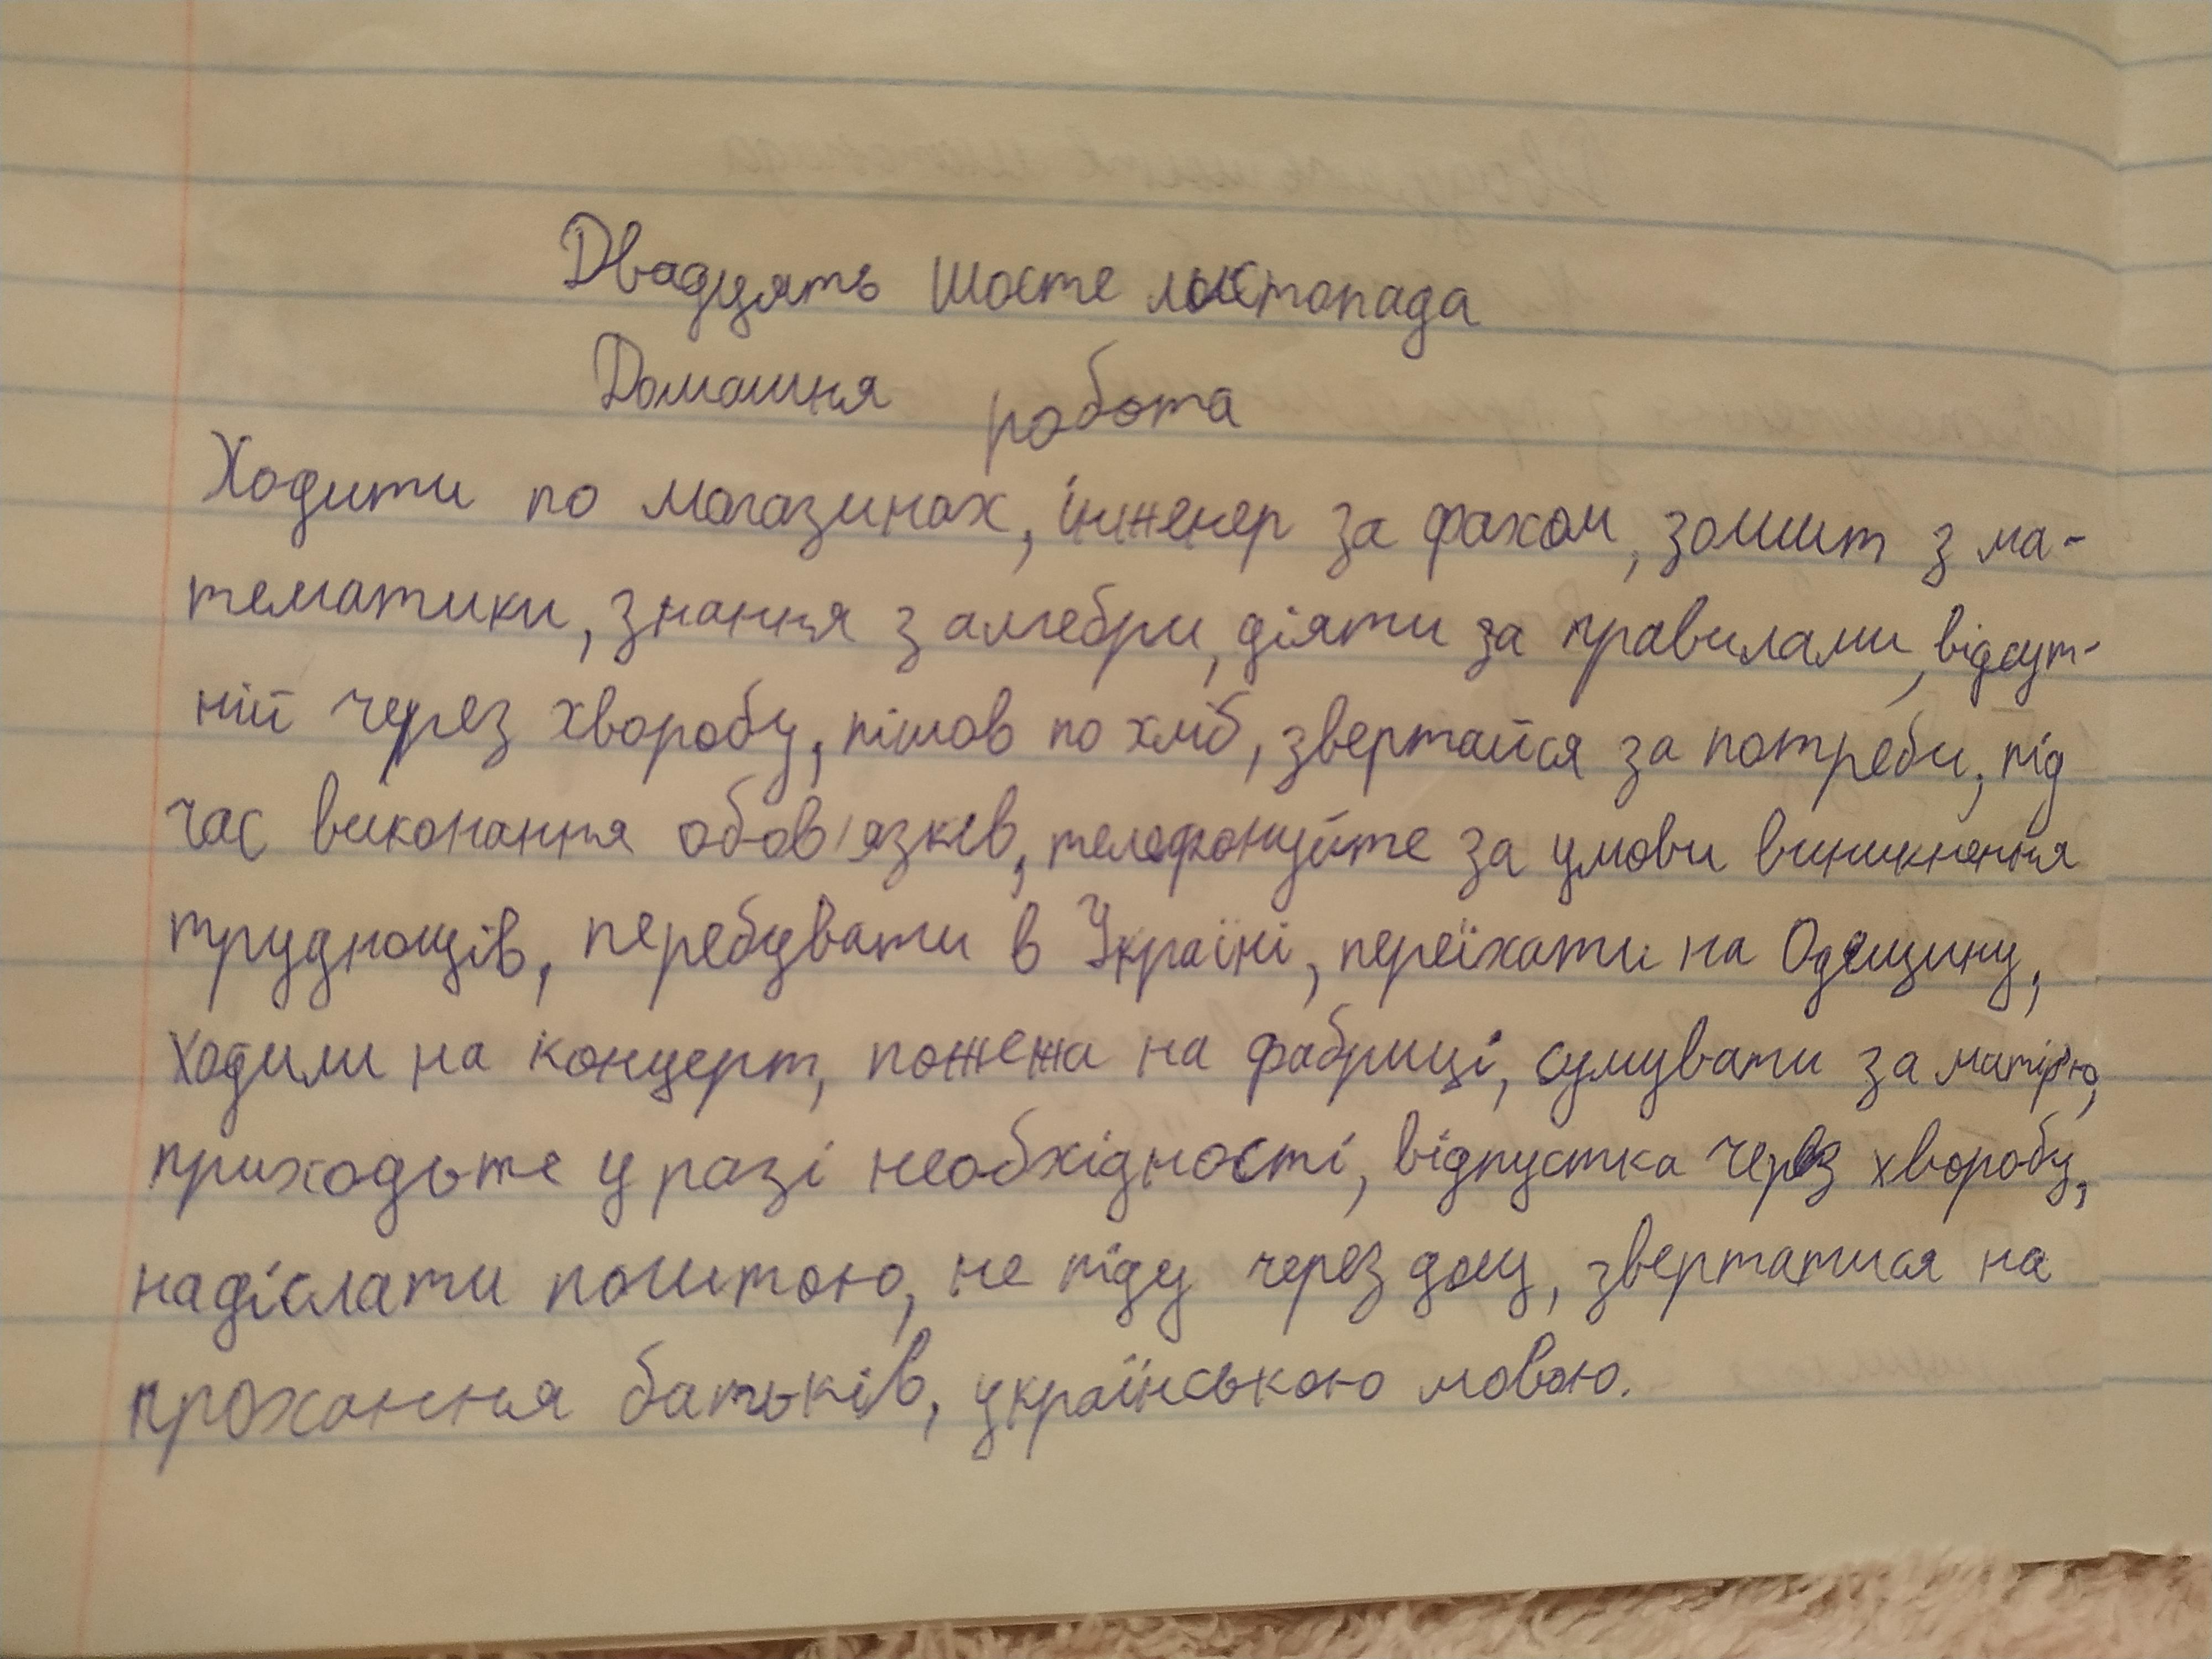 Двадцять шосте листопада
Домашня робота
Ходити по магазинах, інженер за фахом, зошит з ма-
тематики, знання з алгебри, діяти за правилами, відсут-
ній через хворобу, пішов по хліб, звертайся за потреби, під
час виконання обов'язків, телефонуйте за умови виникнення
труднощів, перебувати в Україні, переїхати на Одещину,
ходили на концерт, пожежа на фабриці, сумувати за матір'ю,
приходьте у разі необхідності, відпустка через хворобу,
надіслати поштою, не піду через дощ, звертатися на
прохання батьків, українською мовою.